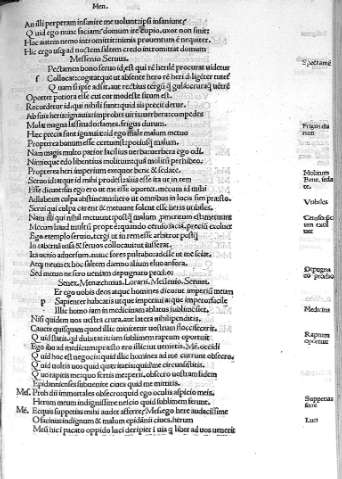 Men.
An illi perperam insanire me uolunt ipsi insaniunt?
Quid ego nunc faciam? domum ire cupio, uxor non sinit
Huc autem nemo intromittit nimis prouentum est nequiter.
Hic ero usque ad noctem saltem credo intromittar domum
Messenio Seruus.
Spectamē bono seruo id est qui rē herilē procurat uidet
f Collocat cogitatque ut absente hero rē heri diligēter tutet
Quam si ipse adsit aut rectius tergū quā gulā crura quā uētrē
Oportet potiora esse cui cor modeste situm est.
Recordetur id qui nihili sunt quid iis precii detur.
Ab suis heris ignauis improbis uiris uerbera compedes
Mola magna lassitudo fames frigus durum
Haec precia sunt ignauiae id ego male malum metuo
Propterea bonum esse certum est potius quam malum.
Nam magis multo patior facilius uerba uerbera ego odi.
Nimioque edo libentius molitum quam molitum prehibeo.
Propterea heri imperium exequor bene & sedate.
Seruo id atque id mihi prodest alii esse ita ut in rem
Esse ducunt sint ego ero ut me esse oportet. metum id mihi
Adhibeam culpa abstineam hero ut omnibus in locis sim praesto.
Serui qui culpa carent & metuunt solent esse heris utibiles.
Nam illi qui nihil metuunt postquam malum
Metuam haud multum prope est quando
Eo exemplo seruio, tergi ut in rem esse arbitror
In taberna uasa & seruos collocaui ut iusserat.
Ita uenio aduorsum, nunc fores pultabo adesse ut me sciat.
Atque utrum ex hoc saltem damni saluum educam foras.
Sed metuo ne sero ueniam depugnato proelio.
Senex, Menaechmus. Lorarii. Messenio. Seruus.
Per ego uobis deos atque homines dico ut imperium meum
p Sapienter habeatis curae quae imperaui atque impero facite
Illic homo iam in medicinam ablatus sublimen siet.
Nisi quidem uos uestra crura aut latera nihilipenditis.
Cauete quisquam quod illic minitetur uestrum floccifecerit.
Quid statis. quid dubitatis iam sublimem raptum oportuit
Ego ibo ad medicum praesto ero illi cum uenietis. Mē. occidi
Quid hoc est negocii quid illic homines ad me currunt obsecro,
Quid uoltis uos quid queritatis quid me circunsistitis.
Quo rapitis me quo fertis me perii, obsecro uestram fidem
Epidamnienses subuenite ciues quid me mittitis.
Mes. Proh dii immortales obsecro quid ego oculis aspicio meis.
Herum meum indignissime nescio qui sublimem ferunt.
Mē. Ecquis suppetias mihi audet afferre? Mes. ego here audacissime
O facinus indignum & malum epidamnii ciues. herum
Meum hic in pacato oppido luci deripier in uia qui liber ad uos uenerit
Spectamē
Frigus durum
Molitum
Vtibiles
Depugnato proelio
Medicina
Raptum oportuit
Suppetias
Luci